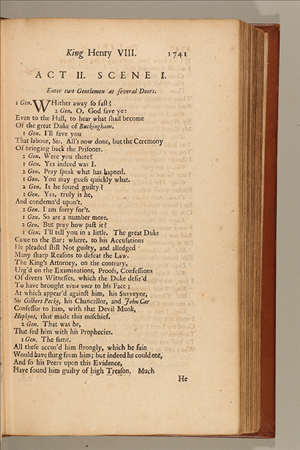 King Henry VIII. 1741
ACT II. SCENE I.
Enter two Gentlemen at several Doors.
1 Gen. WHither away so fast?
2 Gen. O, God save ye:
Even to the Hall, to hear what shall become
Of the great Duke of Buckingham.
1 Gen. I'll save you
That labour, Sir. All's now done, but the Ceremony
Of bringing back the Prisoner.
2 Gen. Were you there?
1 Gen. Yes indeed was I.
2 Gen. Pray speak what has hapned.
1 Gen. You may guess quickly what.
2 Gen. Is he found guilty?
1 Gen. Yes, truly is he,
And condemn'd upon't.
2 Gen. I am sorry for't.
1 Gen. So are a number more.
2 Gen. But pray how past it?
1 Gen. I'll tell you in a little. The great Duke
Came to the Bar; where, to his Accusations
He pleaded still Not guilty, and alledged
Many sharp Reasons to defeat the Law.
The King's Attorney, on the contrary,
Urg'd on the Examinations, Proofs, Confessions
Of divers Witnesses, which the Duke desir'd
To have brought viva voce to his Face;
At which appear'd against him, his Surveyor,
Sir Gilbert Pecky, his Chancellor, and John Car
Confessor to him, with that Devil Monk,
Hopkins, that made this mischief.
2 Gen. That was he,
That fed him with his Prophecies.
1 Gen. The same.
All these accus'd him strongly, which he fain
Would have flung from him; but indeed he could not,
And so his Peers upon this Evidence,
Have found him guilty of high Treason. Much
He